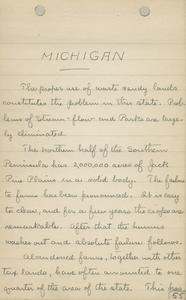 MICHIGAN
The proper use of waste sandy lands
constitutes the problem in this state. Prob-
lems of Stream-flow and Parks are large-
ly eliminated.
The northern half of the Southern
Peninsula has 2,000,000 acres of Jack
Pine Plains in a solid body. The failure
to farms has been pronounced. It is easy
to clear, and for a few years the crops are
remarkable. After that the humus
washes out and absolute failure follows.
Abandoned farms, together with other
tax lands, have often amounted to one
quarter of the area of the state. This